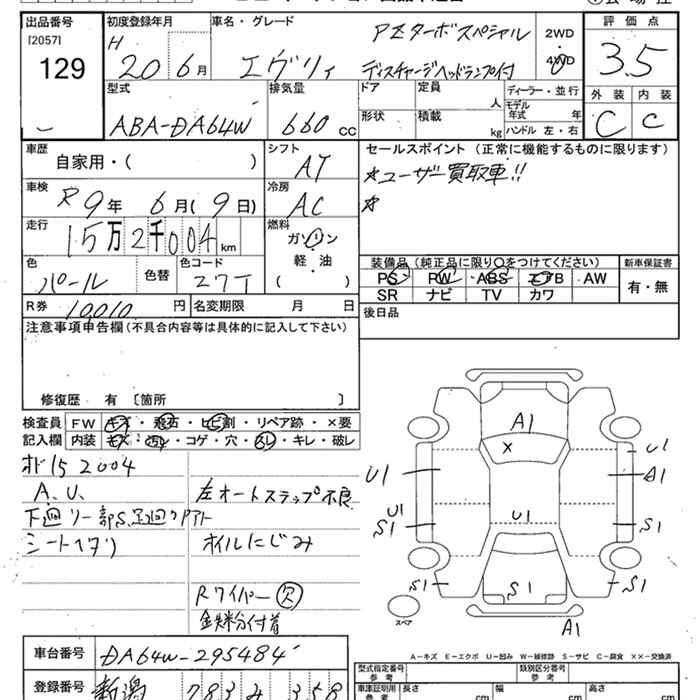 出品番号 初度登録年月 車名・グレード PZターボスペシャル 2WD 評価点
[2057] 129 H 20 6月 エヴリィ ディスチャージヘッドランプ付 4WD 3.5
型式 排気量 ドア 定員 人 ディーラー・並行 外装 内装
ABA-DA64W 660cc 形状 積載 kg モデル年式 年 ハンドル 左・右 C C
車歴 自家用・( ) シフト AT セールスポイント (正常に機能するものに限ります)
車検 R9年 6月(9日) 冷房 AC ☆ユーザー買取車!!
☆
走行 15万2千004km 燃料 ガソリン 軽・油 ( )
装備品 (純正品に限り○をつけてください) 新車保証書
色 パール 色替 色コード Z7T PS PW ABS エアB AW 有・無
SR ナビ TV カワ
R券 10,010円 名変期限 月 日 後日品
注意事項申告欄 (不具合内容等は具体的に記入して下さい)
修復歴 有 [箇所 ]
検査員 FW キズ・飛石・ヒビ割・リペア跡・×要
記入欄 内装 キズ・汚レ・コゲ・穴・スレ・キレ・破レ
A1
152004
A.U. 左オートステップ不良
シートヘタリ オイルにじみ
Rワイパー欠
U1 U1 A1
U1 S1 U1 S1
S1 S1 S1
スペア A1
A-キズ E-エクボ U-凹み W-補修跡 S-サビ C-腐食 ××-交換済
車台番号 DA64W-295484
型式指定番号 参考 類別区分番号 参考
登録番号 新潟 783 358
車庫証明用 参考 長さ cm 幅 cm 高さ cm